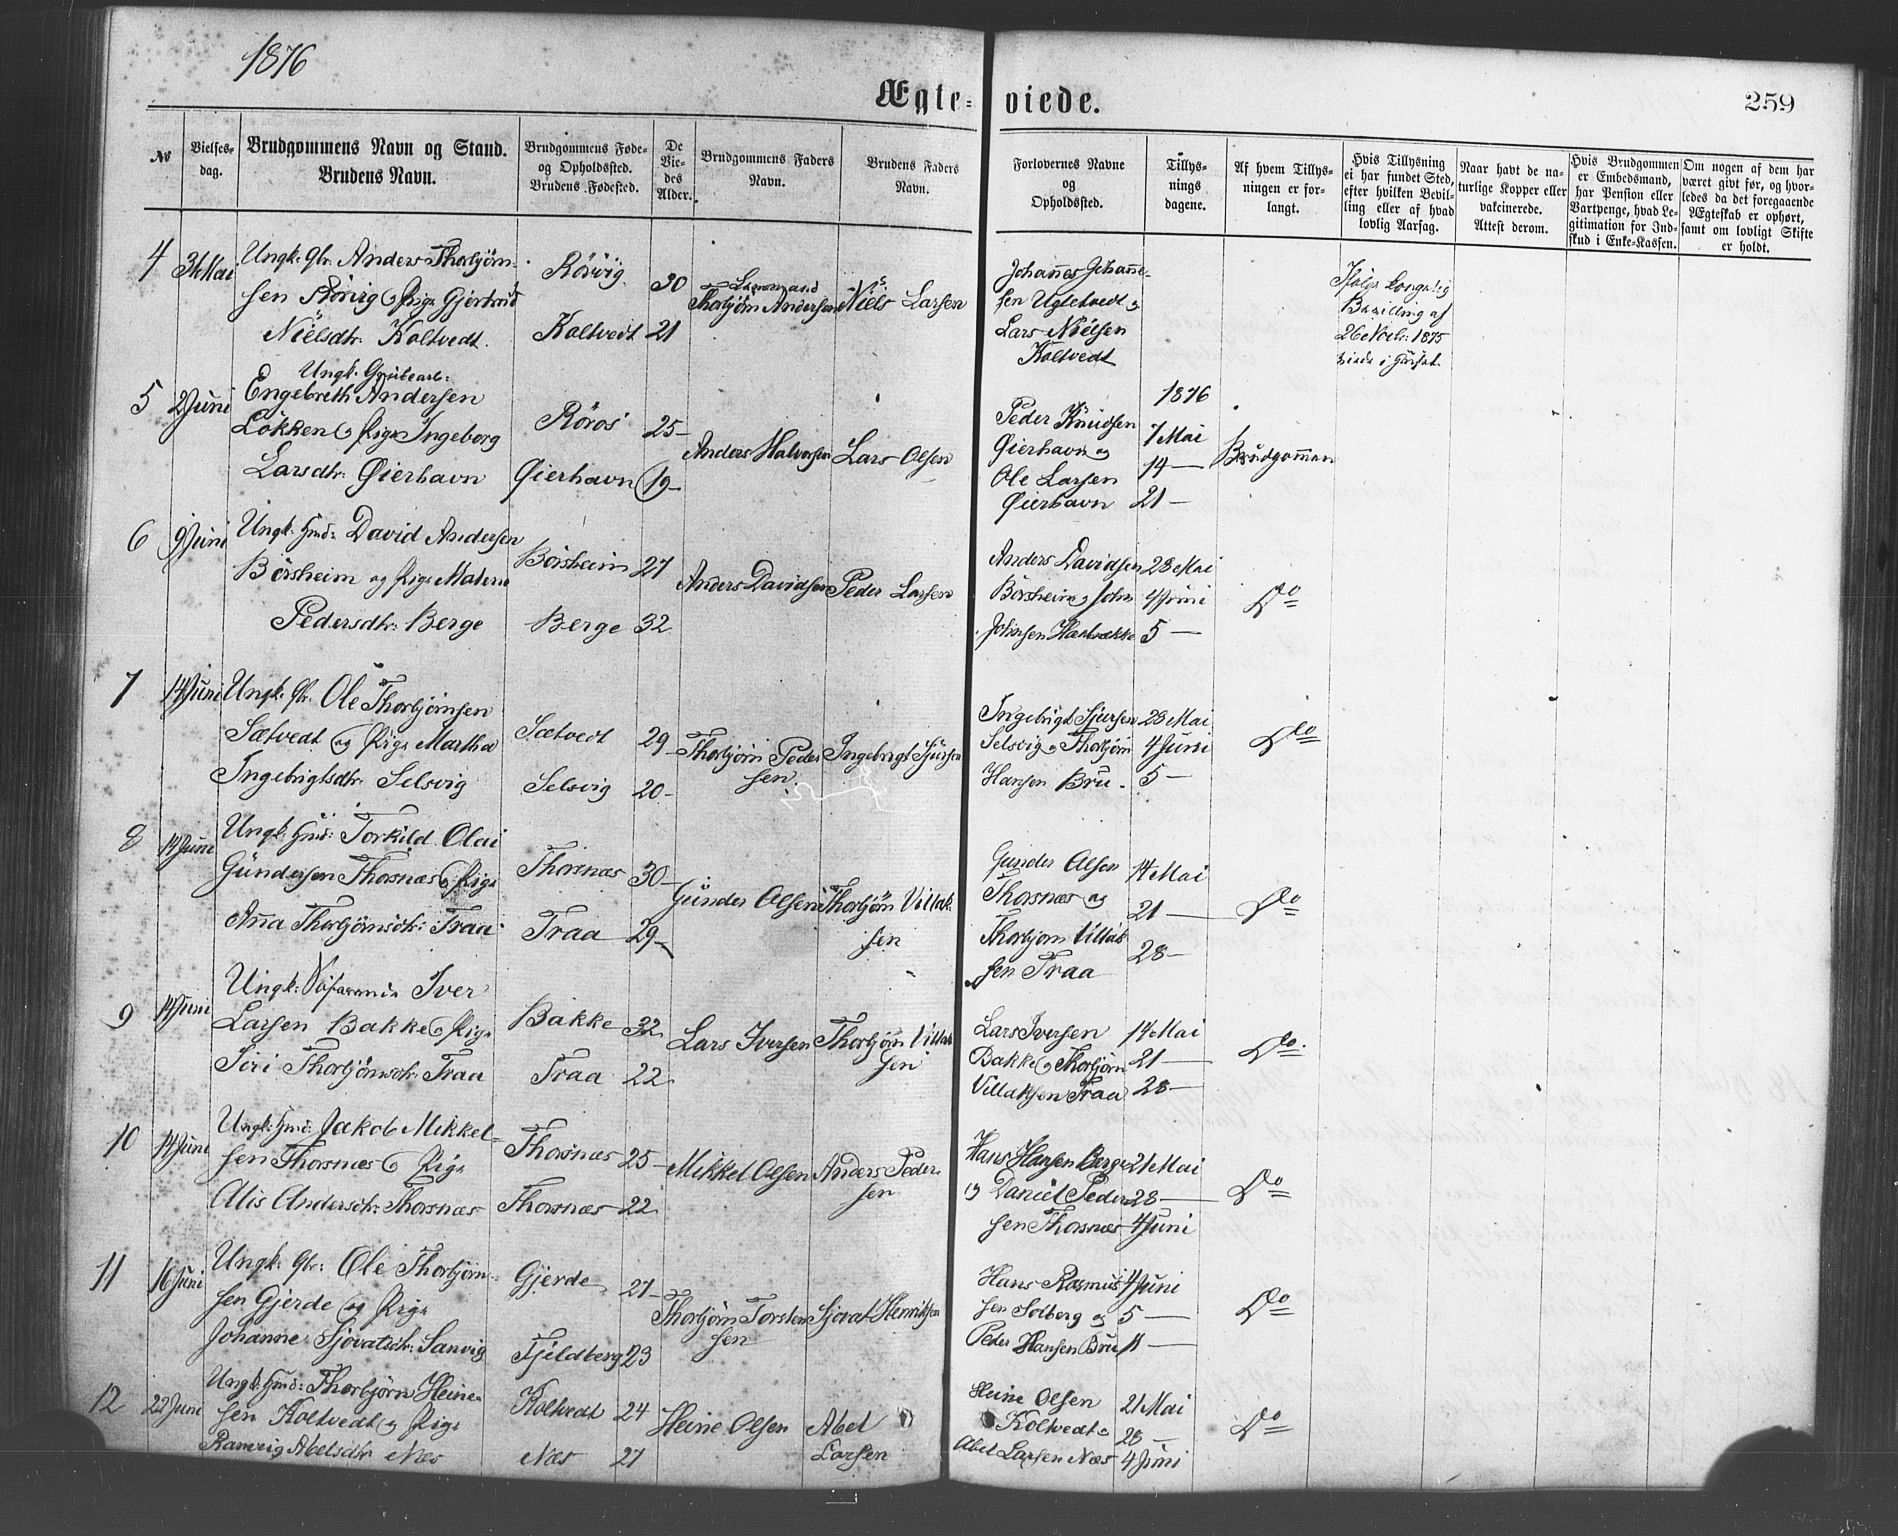 1876
Ægte- viede.
259
No
Vielses-dag.
Brudgommens Navn og Stand.
Brudens Navn.
Brudgommens Føde-
og Opholdssted.
Brudens Fødested.
De
Vie-
des
Alder.
Brudgommens Faders
Navn.
Brudens Faders
Navn.
Forlovernes Navne
og
Opholdssted.
Tillys-
nings
dagene.
Af hvem Tillys-
ningen er for-
langt.
Hvis Tillysning
ei har fundet Sted,
efter hvilken Bevil-
ling eller af hvad
lovlig Aarsag.
Naar havt de na-
turlige Kopper eller
vakcinerede.
Attest derom.
Hvis Brudgommen
er Embedsmand,
har Pension eller
Vartpenge, hvad Le-
gitimation for Ind-
skud i Enke-Kassen.
Om nogen af dem har
været givt før, og hvor-
ledes da det foregaaende
Ægteskab er ophørt,
samt om lovligt Skifte
er holdt.
4 Mai
Ungk. Anders Thorbjørn-
sen Rørvig Pige Gjertrud
Nielsdtr. Koltvedt.
Rørvig 30
Koltvedt 21
Thorbjørn Andersen
Niels Larsen
Johannes Johanne-
sen Ugletvedt og
Lars Nielsen
Koltvedt
Bevilling af
26 Novbr. 1875
5 2 Juni
Ungk.
Engebreth Andersen
Løkken og Pige Ingeborg
Larsdtr. Øierhavn
Røros 25-
Øierhavn 19-
Anders Halvorsen
Lars Olsen
Peder Knudsen
Øierhavn og
Ole Larsen
Øierhavn
1876
7 Mai
14 —
21 —
Brudgommen
6 9 Juni
Ungk. David Andersen
Børsheim og Pige Malene
Pedersdtr. Berge
Børsheim 27
Berge 32
Anders Davidsen
Peder Larsen
Anders Davidsen
Børsheim og John
Johnsen
28 Mai
4 Juni
5 —
Do
7 14 Juni
Ungk. Ole Thorbjørnsen
Sætvedt og Pige Martha
Ingebrigtsdtr. Selsvig
Sætvedt 29-
Selsvig 20-
Thorbjørn Peder
sen
Ingebrigt Sjursen
Ingebrigt Sjursen
Selsvig og Thorbjørn
Hansen Bru.
28 Mai
4 Juni
5 —
Do
8 14 Juni
Ungk. Torkild Olai
Gundersen Thorsnæs og Pige
Anna Thorbjørnsdtr. Traa
Thorsnæs 30-
Traa 29-
Gunder Olsen
Thorbjørn Villak-
sen
Gunder Olsen
Thorsnæs og
Thorbjørn Villak
sen Traa
14 Mai
21 —
28 —
Do
9 14 Juni
Ungk. Iver
Larsen Bakke og Pige
Siri Thorbjørnsdtr. Traa
Bakke 32
Traa 22
Lars Iversen
Thorbjørn Villak
sen
Lars Iversen
Bakke og Thorbjørn
Villaksen Traa
14 Mai
21 —
28 —
Do.
10 14 Juni
Ungk. Jakob Mikkel-
sen Thorsnæs og Pige
Alis Andersdtr. Thorsnæs
Thorsnæs 25-
Thorsnæs 22
Mikkel Olsen
Anders Peder-
sen
Hans Hansen Berge
og Daniel Peder
sen Thorsnæs
21 Mai
28 —
4 Juni
Do
11 16 Juni
Ungk. Ole Thorbjørn-
sen Gjerde og Pige
Johanne Sjovatsdtr. Sanvig
Gjerde 27-
Fjeldberg 23
Thorbjørn Torsten
sen
Sjovat Henriksen
Hans Rasmus
sen Solberg og
Peder Hansen Bru
4 Juni
5 —
11 —
Do
12 22 Juni
Ungk. Thorbjørn Heine-
sen Koltvedt og Pige
Ranveig Abelsdtr. Næs
Koltvedt 24
Næs 27
Heine Olsen
Abel
Larsen
Heine Olsen
Koltvedt
Abel Larsen Næs
21 Mai
28 —
4 Juni
Do